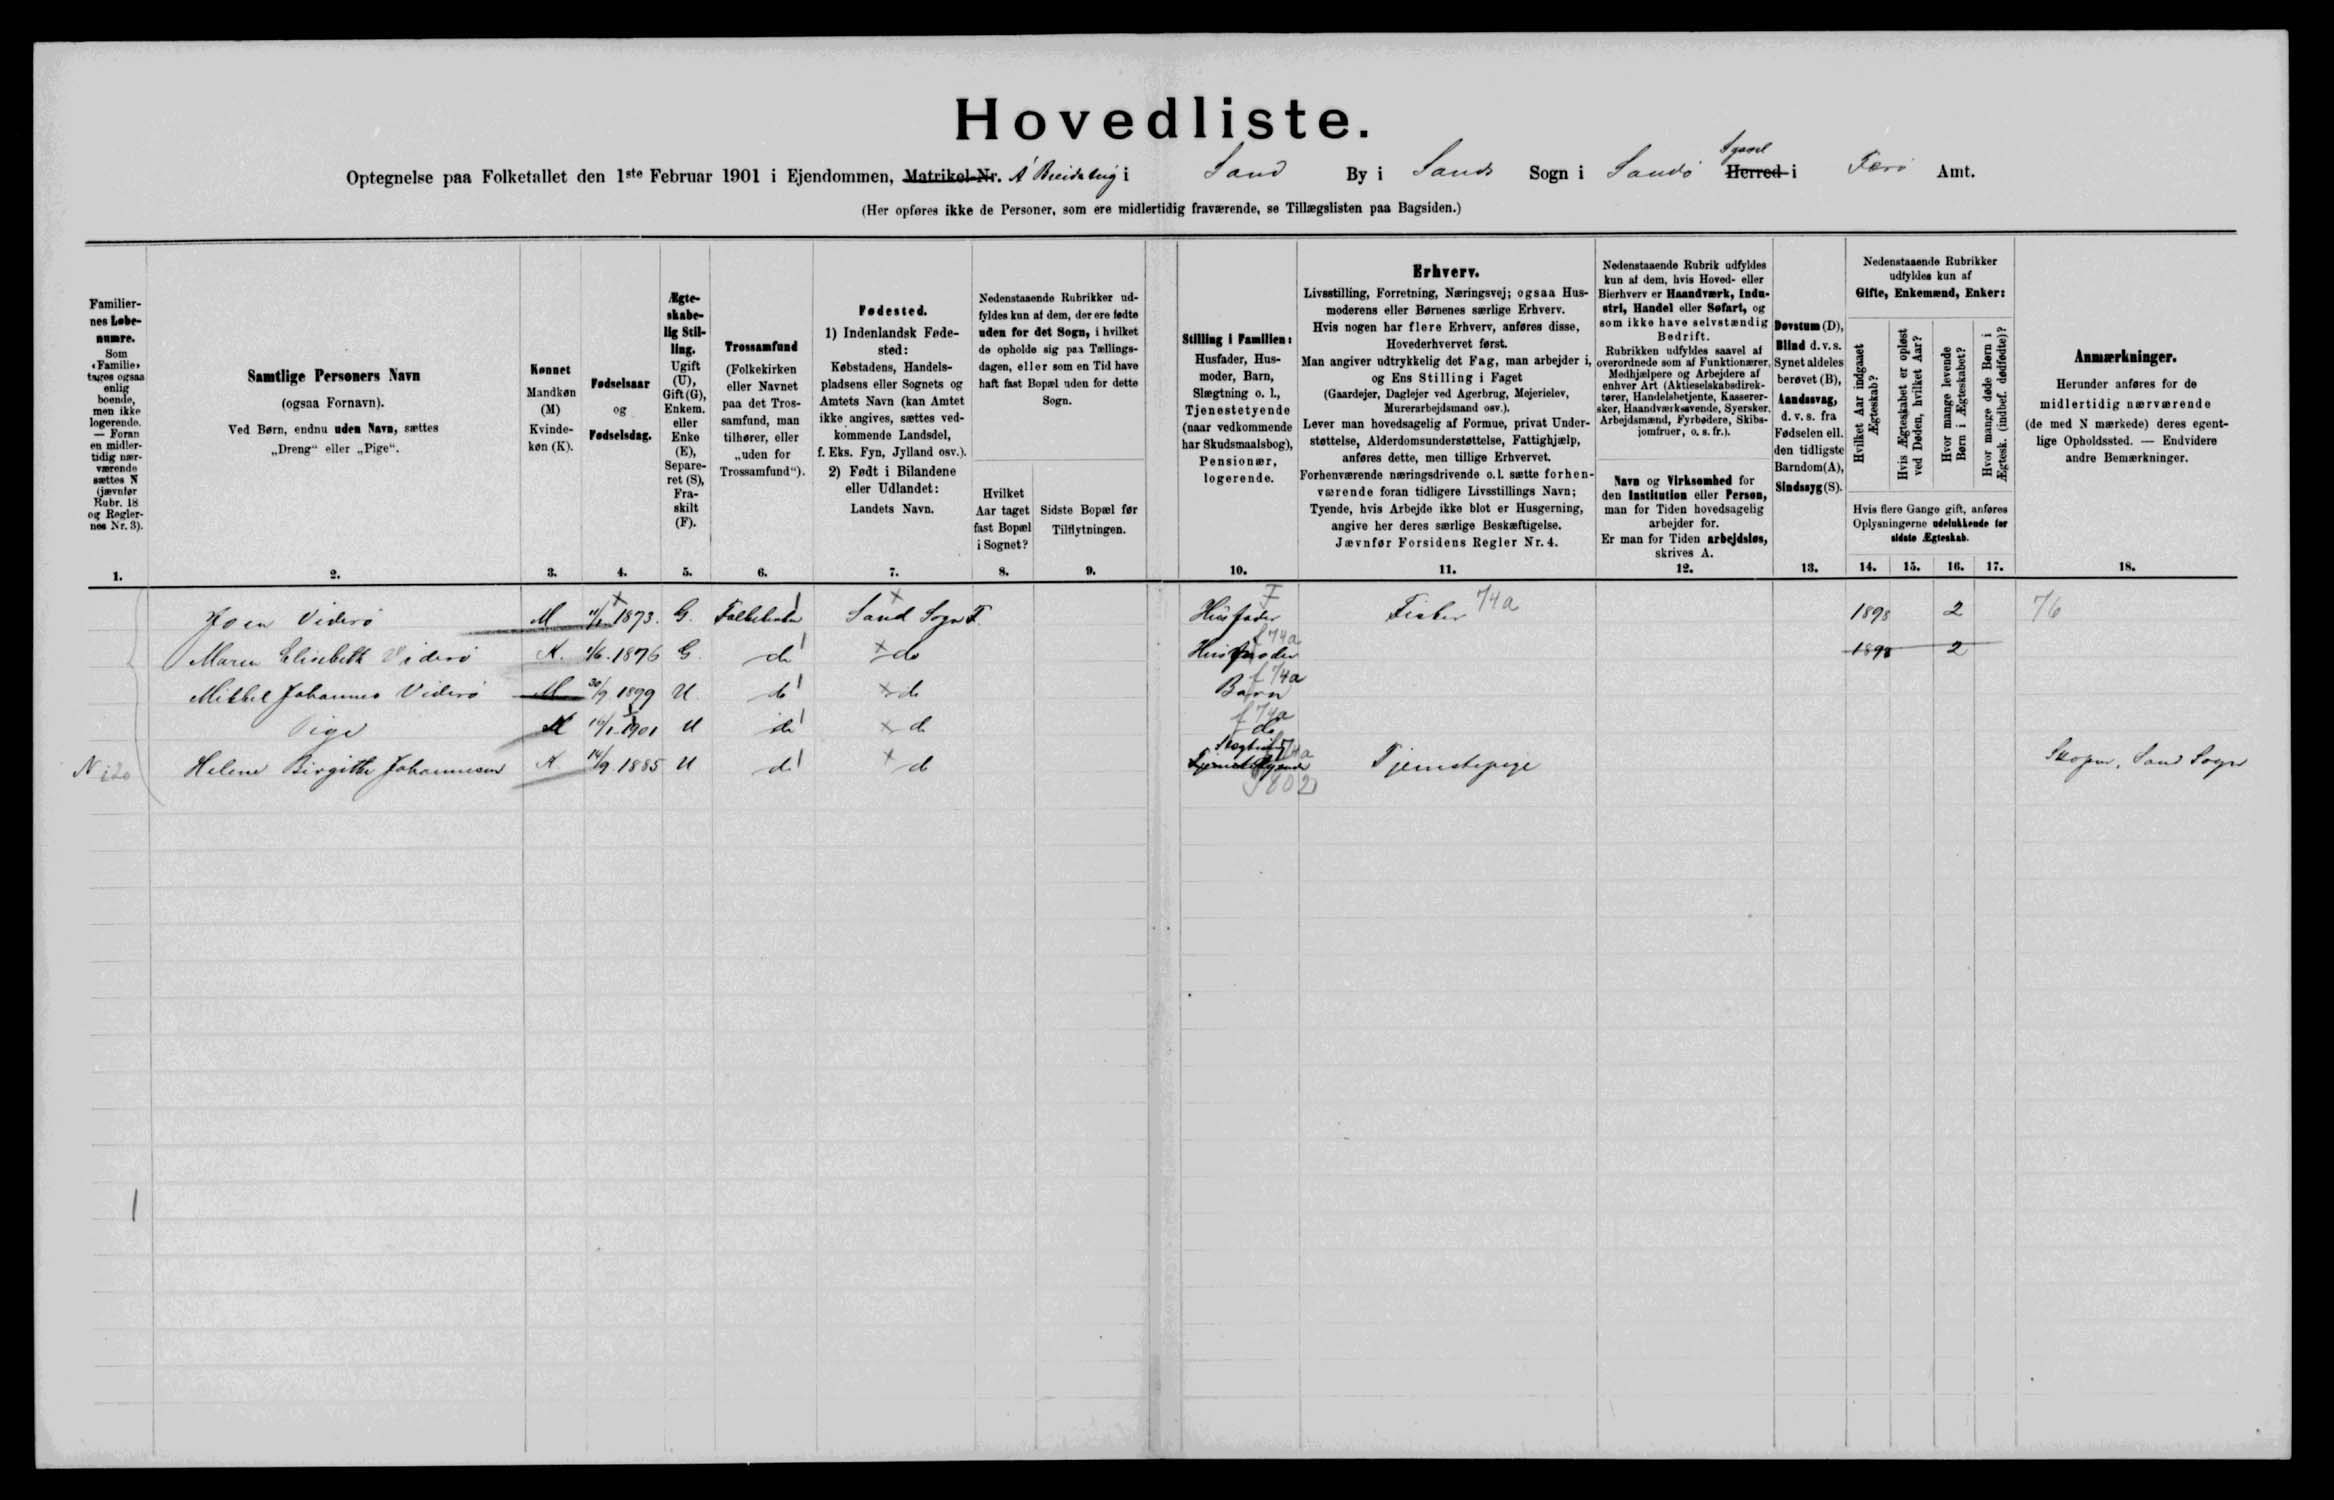 Hovedliste.
Optegnelse paa Folketallet den 1ste Februar 1901 i Ejendommen, Matrikel-Nr. Á i Sand By i Sands Sogn i Sandø Syssel Herred i Færø Amt.
(Her opføres ikke de Personer, som ere midlertidig fraværende, se Tillægslisten paa Bagsiden.)
Familiernes Løbenumre.
Som «Familie» tages ogsaa enlig boende, men ikke logerende. — Foran en midlertidig nærværende sættes N (jævnfør Rubr. 18 og Reglernes Nr. 3).
1.
Samtlige Personers Navn
(ogsaa Fornavn).
Ved Børn, endnu uden Navn, sættes
„Dreng“ eller „Pige“.
2.
Kønnet
Mandkøn (M)
Kvindekøn (K).
3.
Fødselsaar
og
Fødselsdag.
4.
Ægteskabelig Stilling.
Ugift (U), Gift (G), Enkem. eller Enke (E), Separeret (S), Fraskilt (F).
5.
Trossamfund
(Folkekirken eller Navnet paa det Trossamfund, man tilhører, eller „uden for Trossamfund“).
6.
Fødested.
1) Indenlandsk Fødested:
Købstadens, Handelspladsens eller Sognets og Amtets Navn (kan Amtet ikke angives, sættes vedkommende Landsdel, f. Eks. Fyn, Jylland osv.).
2) Født i Bilandene eller Udlandet:
Landets Navn.
7.
Nedenstaaende Rubrikker udfyldes kun af dem, der ere fødte uden for det Sogn, i hvilket de opholde sig paa Tællingsdagen, eller som en Tid have haft fast Bopæl uden for dette Sogn.
Hvilket Aar taget fast Bopæl i Sognet?
8.
Sidste Bopæl før Tilflytningen.
9.
Stilling i Familien:
Husfader, Husmoder, Barn, Slægtning o. l., Tjenestetyende (naar vedkommende har Skudsmaalsbog), Pensionær, logerende.
10.
Erhverv.
Livsstilling, Forretning, Næringsvej; ogsaa Husmoderens eller Børnenes særlige Erhverv.
Hvis nogen har flere Erhverv, anføres disse, Hovederhvervet først.
Man angiver udtrykkelig det Fag, man arbejder i, og Ens Stilling i Faget
(Gaardejer, Daglejer ved Agerbrug, Mejerielev, Murerarbejdsmand osv.).
Lever man hovedsagelig af Formue, privat Understøttelse, Alderdomsunderstøttelse, Fattighjælp, anføres dette, men tillige Erhvervet.
Forhenværende næringsdrivende o.l. sætte forhenværende foran tidligere Livsstillings Navn;
Tyende, hvis Arbejde ikke blot er Husgerning, angive her deres særlige Beskæftigelse.
Jævnfør Forsidens Regler Nr. 4.
11.
Nedenstaaende Rubrik udfyldes kun af dem, hvis Hoved- eller Bierhverv er Haandværk, Industri, Handel eller Søfart, og som ikke have selvstændig Bedrift.
Rubrikken udfyldes saavel af overordnede som af Funktionærer, Medhjælpere og Arbejdere af enhver Art (Aktieselskabsdirektører, Handelsbetjente, Kasserersker, Haandværksøvende, Syersker, Arbejdsmænd, Fyrbødere, Skibsjomfruer, o. s. fr.).
Navn og Virksomhed for den Institution eller Person, man for Tiden hovedsagelig arbejder for.
Er man for Tiden arbejdsløs, skrives A.
12.
Døvstum (D), Blind d. v. s. Synet aldeles berøvet (B), Aandssvag, d. v. s. fra Fødselen ell. den tidligste Barndom (A), Sindssyg (S).
13.
Nedenstaaende Rubrikker udfyldes kun af
Gifte, Enkemænd, Enker:
Hvilket Aar indgaaet Ægteskab?
Hvis Ægteskabet er opløst ved Døden, hvilket Aar?
Hvor mange levende Børn i Ægteskabet?
Hvor mange døde Børn i Ægtesk. (indbef. dødfødte)?
Hvis flere Gange gift, anføres Oplysningerne udelukkende for sidste Ægteskab.
14. 15. 16. 17.
Anmærkninger.
Herunder anføres for de midlertidig nærværende (de med N mærkede) deres egentlige Opholdssted. — Endvidere andre Bemærkninger.
18.
Joen Viderø M 1873. G. Folkekirken Sand Sogn F. Husfader Fisker 74a 1898 2 76
Maren Elisabeth Viderø K. 1876 G. do do Husmoder f 74a 1898 2
Mikkel Johannes Viderø M 30/9 1899 U. do do Barn f 74a
Pige 1901 U do do do f 74a
N Helene Birgithe Johannesen K 14/9 1885 U do do Tjenestetyende Tjenestepige Skopen, Sand Sogn